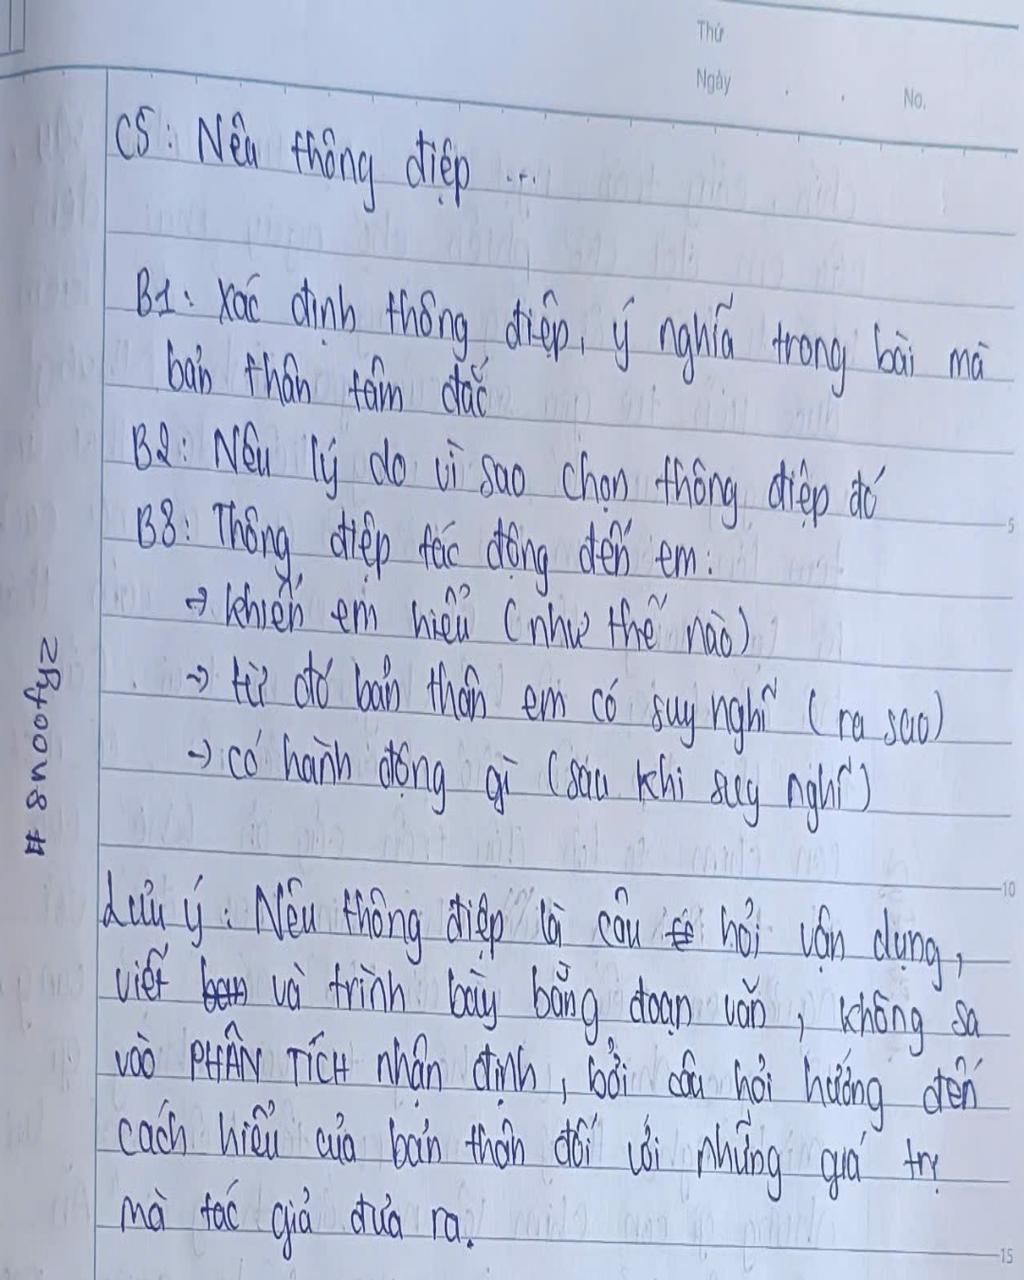 Thứ
Ngày . . No.
C5: Nêu thông điệp ...
B1: Xác định thông điệp, ý nghĩa trong bài mà
bản thân tâm đắc
B2: Nêu lý do vì sao chọn thông điệp đó
B3: Thông điệp tác động đến em:
→ khiến em hiểu (như thế nào)
→ từ đó bản thân em có suy nghĩ (ra sao)
→ có hành động gì (sau khi suy nghĩ)
Lưu ý: Nêu thông điệp là câu hỏi vận dụng,
viết và trình bày bằng đoạn văn, không sa
vào PHÂN TÍCH nhận định, bởi câu hỏi hướng đến
cách hiểu của bản thân đối với những giá trị
mà tác giả đưa ra.
5
10
15